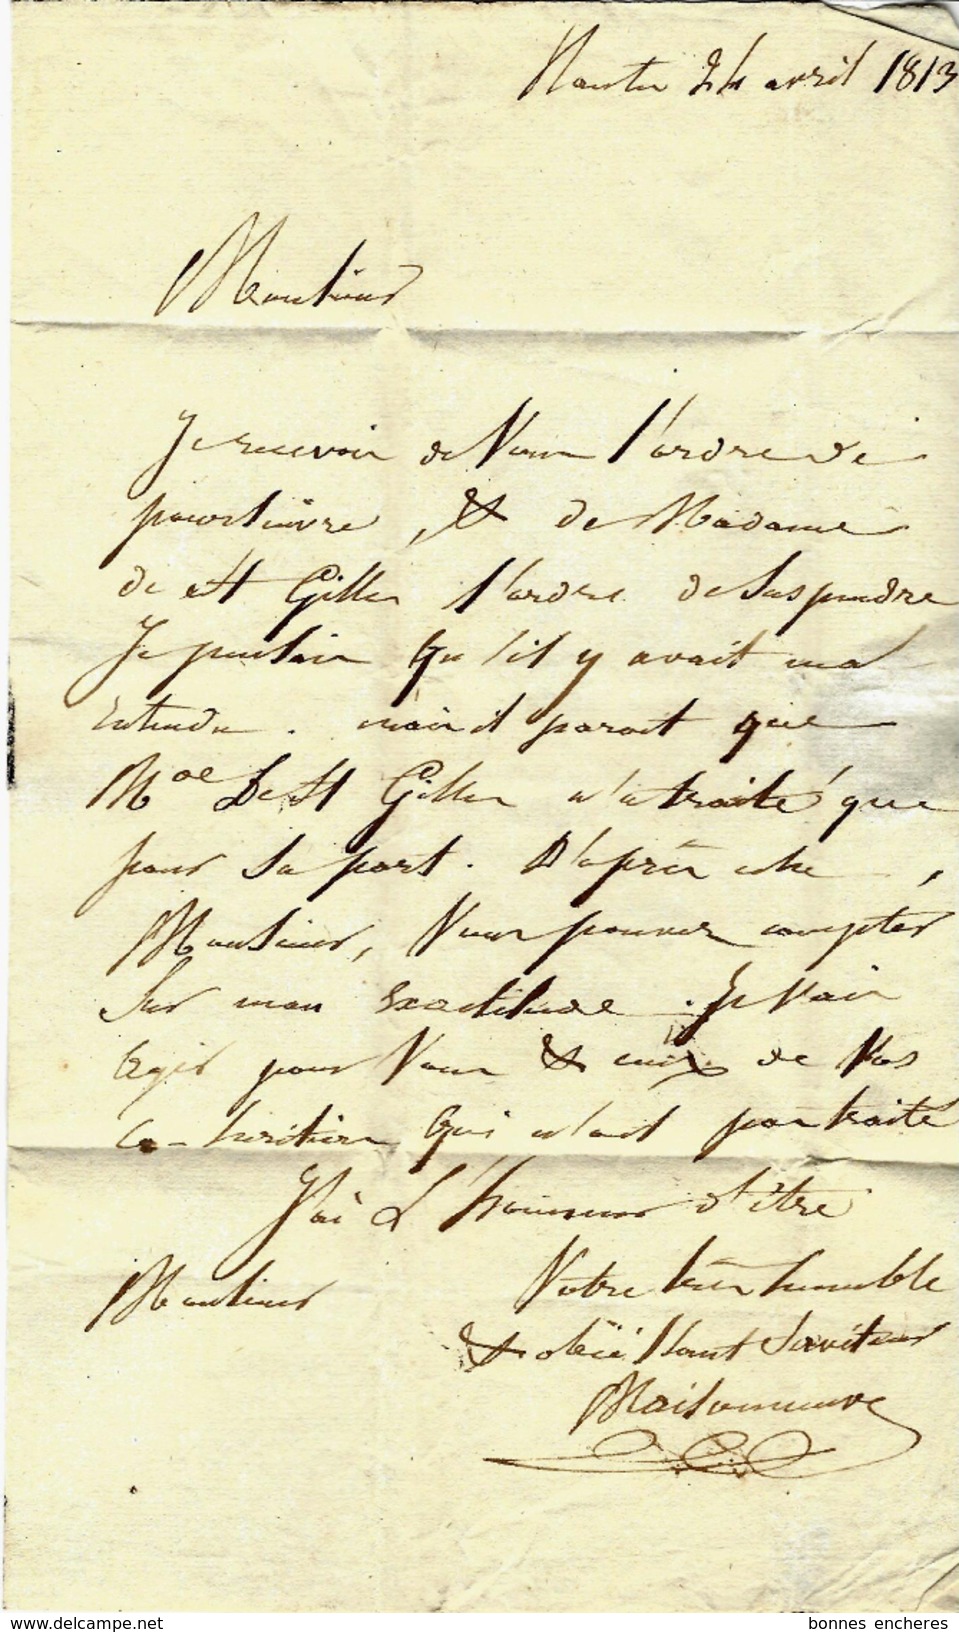 Nantes 24 avril 1813
Monsieur
Je recevois de Vous l'ordre de
poursuivre, & de Madame
de St Gilles l'ordre de suspendre
Je pensais qu'il y avait mal
entendu. mais il parait que
Mde De St Gilles n'a traité que
pour sa part. D'après cela,
Monsieur, Vous pouvez compter
sur mon exactitude. Je Vais
agir pour Vous & ceux de Vos
co-heritiers qui n'ont pas traité
J'ai L'honneur d'être
Monsieur Votre très humble
& obéissant Serviteur
Maisonneuve
www.delcampe.net bonnes encheres